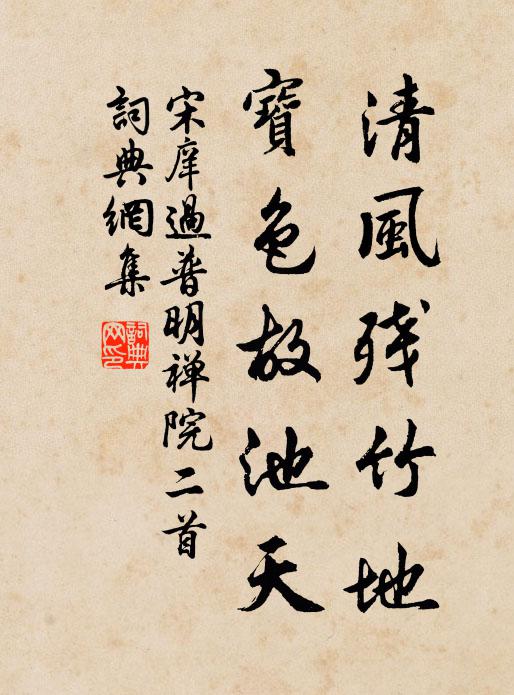 清風残竹地
寶色故池天
宋庠過普明禅院二首
詞典網集
詞典网印